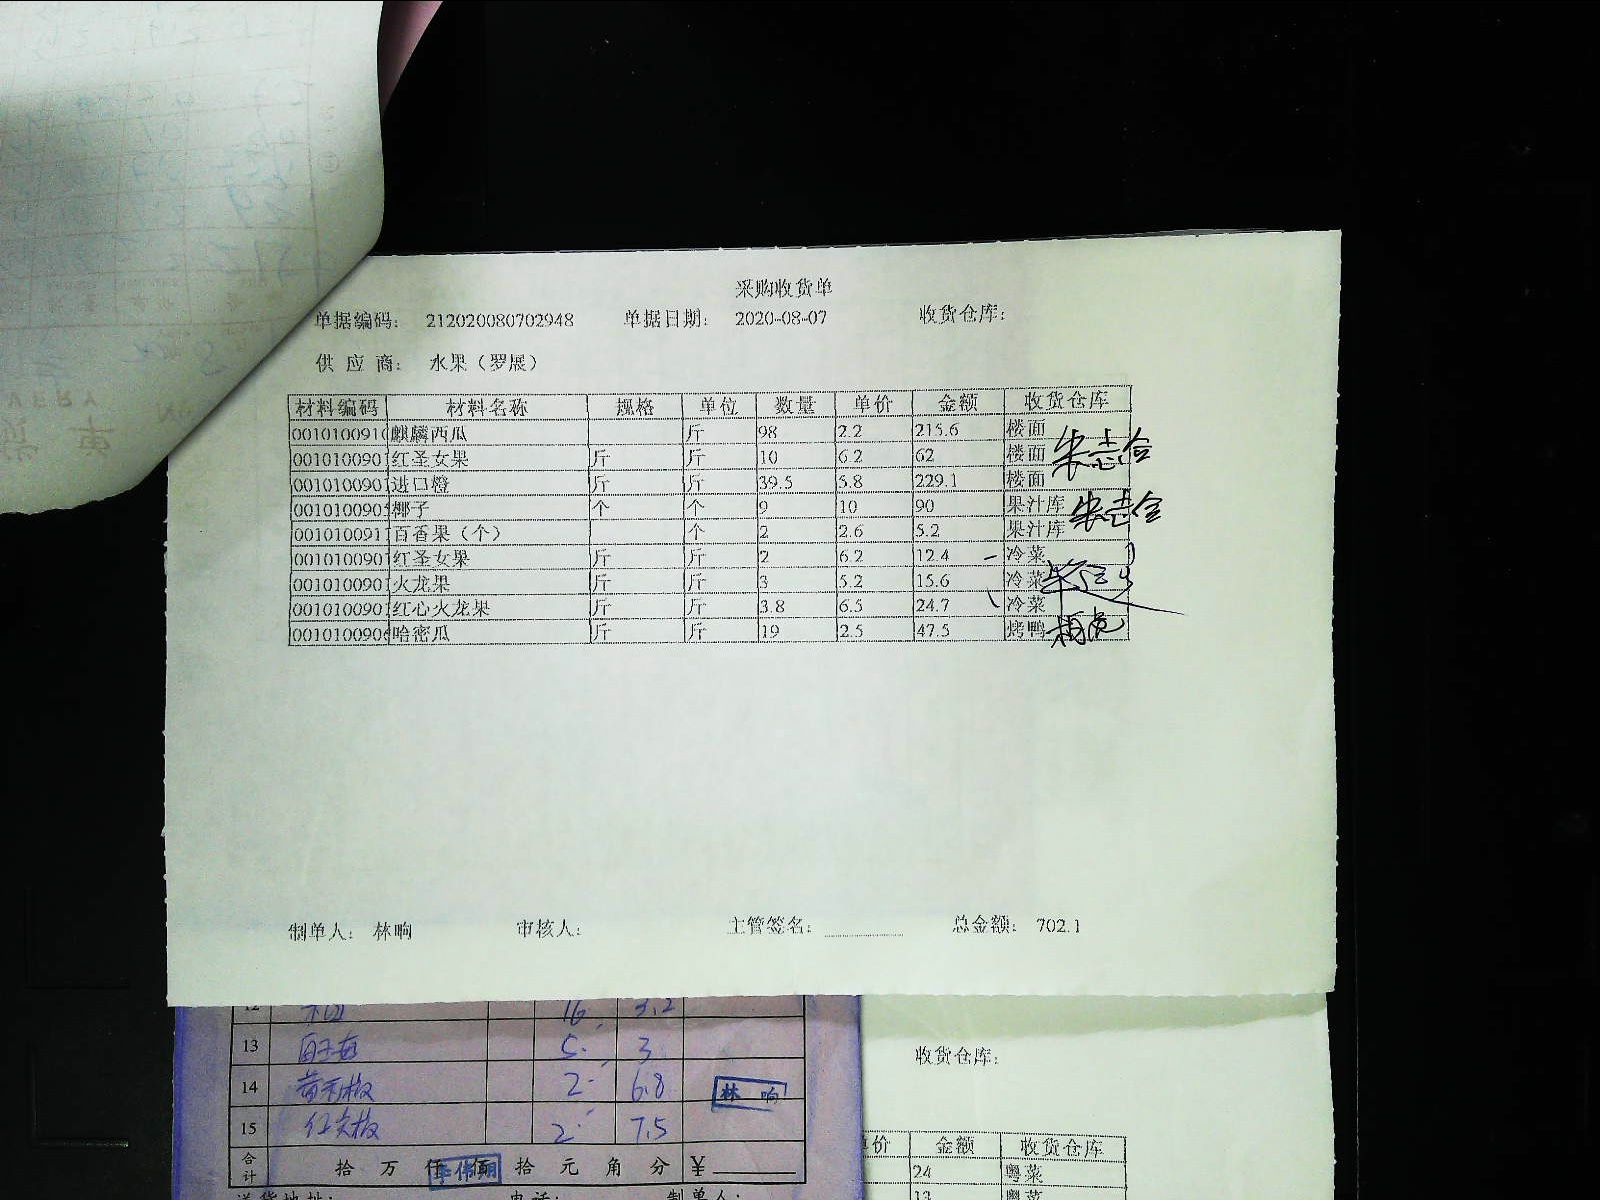 采购收货单
单据编码： 212020080702948 单据日期： 2020-08-07 收货仓库：
供 应 商： 水果（罗展）
材料编码 材料名称 规格 单位 数量 单价 金额 收货仓库
0010100910 麒麟西瓜 斤 98 2.2 215.6 楼面
001010090 红圣女果 斤 斤 10 6.2 62 楼面 朱志合
001010090 进口橙 斤 斤 39.5 5.8 229.1 楼面
001010090 椰子 个 个 9 10 90 果汁库 朱志合
001010091 百香果（个） 个 2 2.6 5.2 果汁库
001010090 红圣女果 斤 斤 2 6.2 12.4 冷菜
001010090 火龙果 斤 斤 3 5.2 15.6 冷菜
001010090 红心火龙果 斤 斤 3.8 6.5 24.7 冷菜
001010090 哈密瓜 斤 斤 19 2.5 47.5 烤鸭
制单人： 林响 审核人： 主管签名： 总金额： 702.1
12 16 3.2
13 5 3
14 黄尖椒 2 6.8 林 响
15 红尖椒 2 7.5
合计 拾 万 仟 佰 拾 元 角 分 ¥
送货地址： 电话： 制单人：
收货仓库：
单价 金额 收货仓库
24 粤菜
13 粤菜